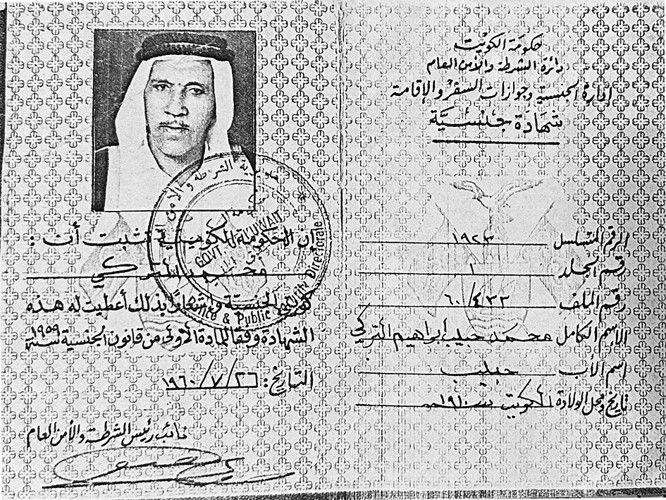 حكومة الكويت
دائرة الشرطة والأمن العام
إدارة الجنسية وجوازات السفر والإقامة
شهادة جنسية
الرقم المتسلسل ١٩٢٣
رقم الجلد ١
رقم الملف ٦٠/٤٣٣
الاسم الكامل محمد حبيب ابراهيم التركي
اسم الأب حبيب
تاريخ ومحل الولادة الكويت ١٩١٠
إن الحكومة الكويتية تثبت أن :
محمد التركي
كويتي الجنسية وإشعارا بذلك أعطيت له هذه
الشهادة وفقا للمادة الأولى من قانون الجنسية سنة ١٩٥٩
التاريخ: ٢٦/٧/١٩٦٠
نائب رئيس الشرطة والأمن العام
GOVT. OF KUWAIT
Police & Public Security Directorate